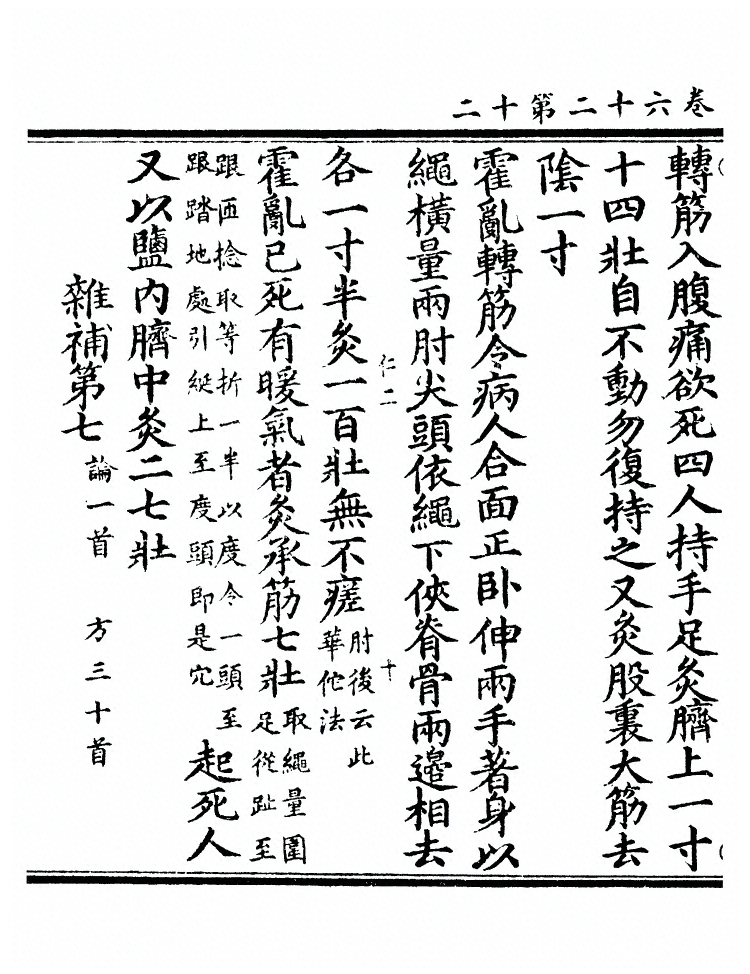 卷六十二第十二
轉筋入腹痛欲死四人持手足灸臍上一寸
十四壯自不動勿復持之又灸股裏大筋去
陰一寸
霍亂轉筋令病人合面正卧伸兩手著身以
繩橫量兩肘尖頭依繩下俠脊骨兩邊相去
仁二 十
各一寸半灸一百壯無不瘥
肘後云此
華佗法
霍亂已死有暖氣者灸承筋七壯
取繩量圍
足從趾至
跟匝捻取等折一半以度令一頭至
跟踏地處引綖上至度頭即是穴
起死人
又以鹽內臍中灸二七壯
雜補第七 論一首 方三十首